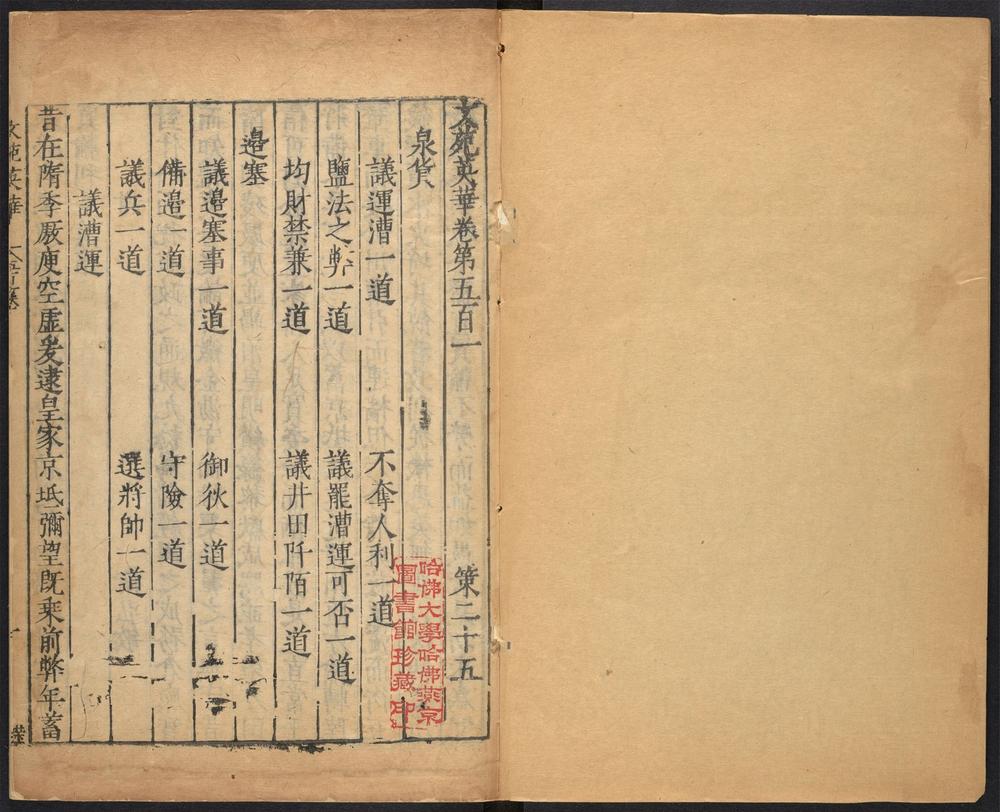 文苑英華卷第五百一 策二十五
泉貨
議運漕一道 不奪人利一道
鹽法之弊一道 議罷漕運可否一道
均財禁兼一道 議井田阡陌一道
邉塞
議邉塞事一道 御狄一道
備邉一道 守險一道
議兵一道 選將帥一道
議漕運
昔在隋季厫庾空虛爰逮皇家京坻彌望旣乘前弊年蓄
文苑英華
哈佛大學哈佛燕京
圖書館珍藏印